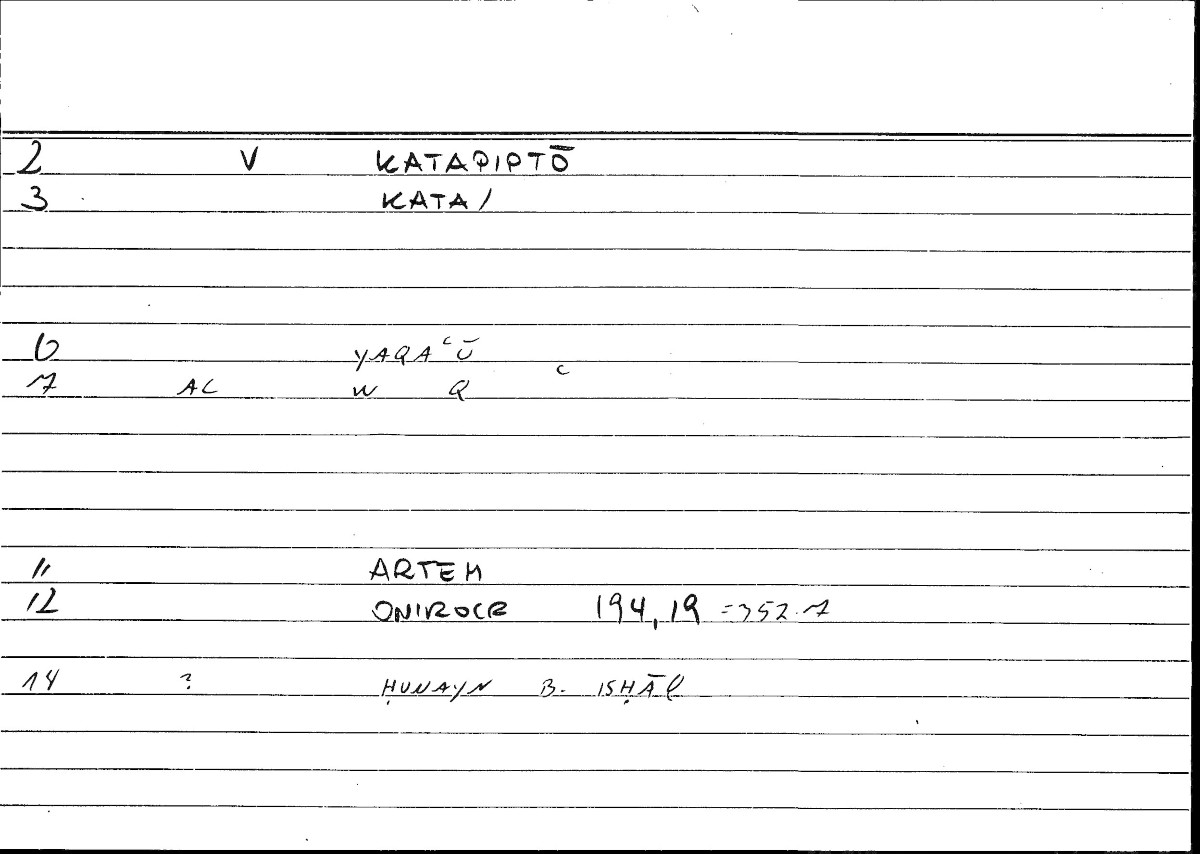 2 V KATAPIPTŌ
3 KATA/
6 YAQAʿŪ
7 AC W Q ʿ
11 ARTEM
12 ONIROCR 194,19 =352.7
14 ? ḤUNAYN B. ISḤĀQ